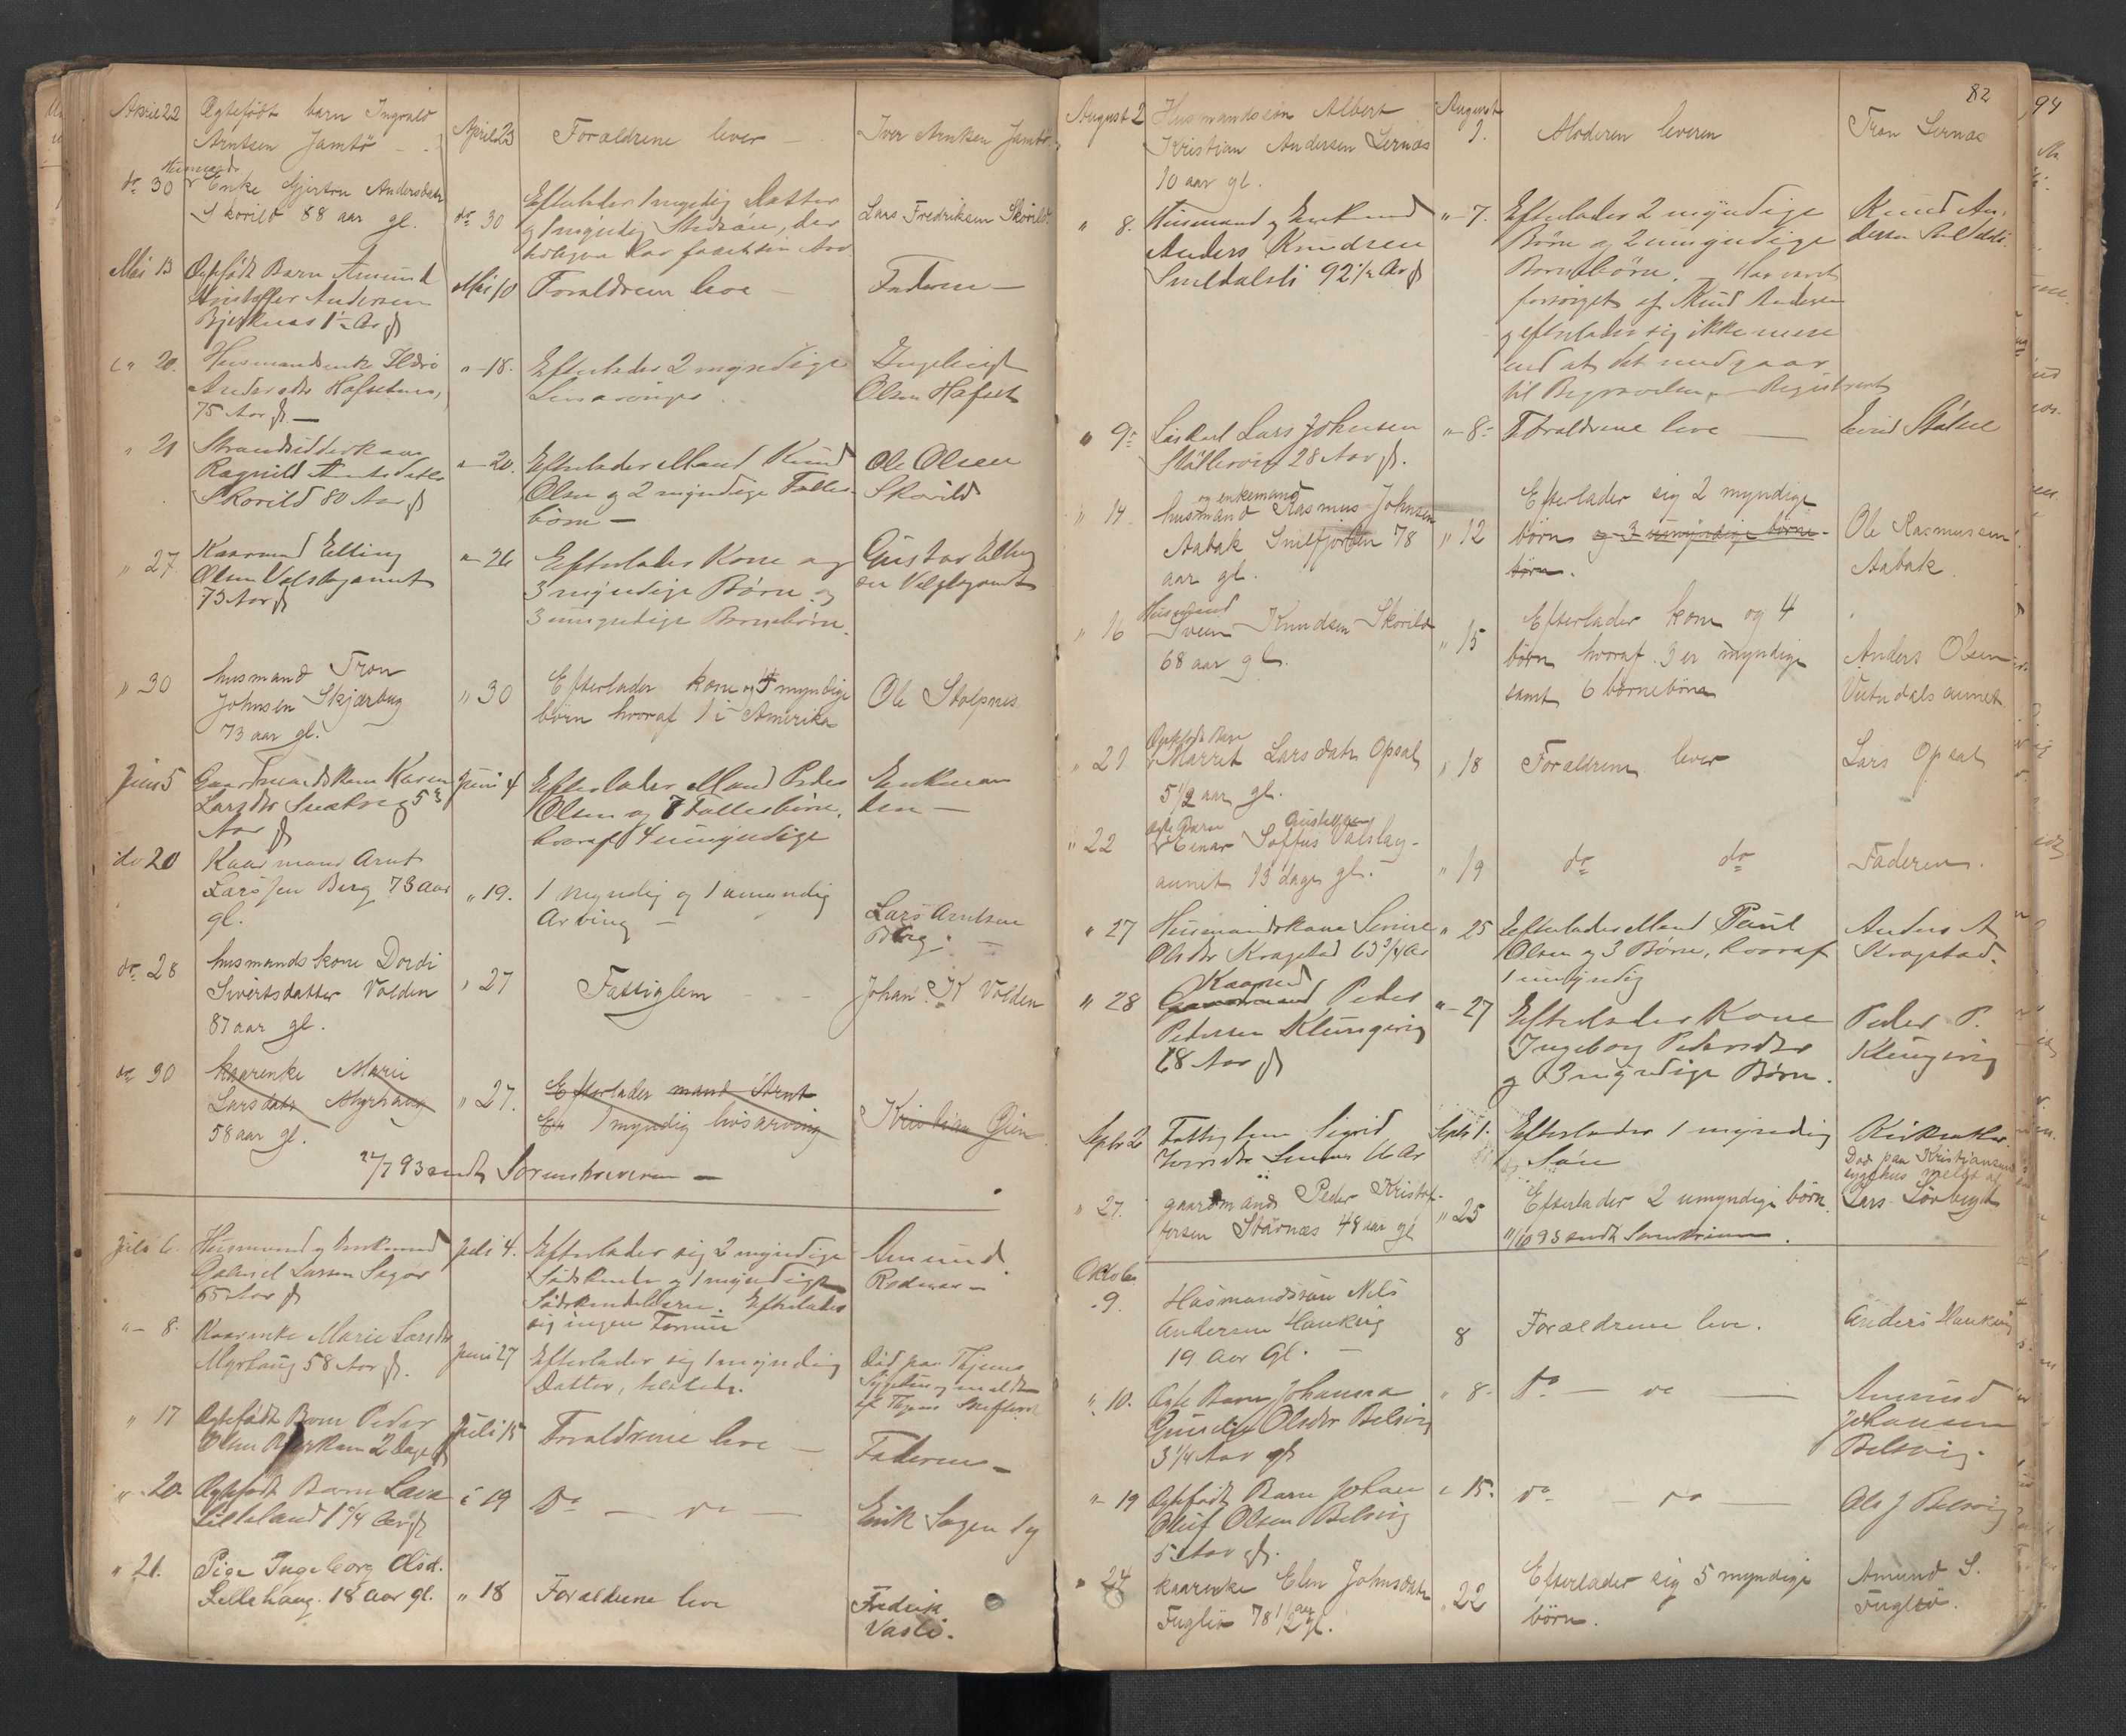 April 22 Ægtefödt barn Ingvald April 23 Forældrene lever — Iver Arntsen Jamtö
Arntsen Jamtö —
Husmands
do 30 Enke Gjertru Andersdatr do 30 Efterlader 1 myndig Datter Lars Fredriksen Skorild
Skorild 88 aar gl. og 1 myndig Stedsön, der
har faaet sin Arv
Mai 13 Ægtefödt Barn Amund Mai 10 Forældrene leve — Faderen —
Kristoffer Andersen
Bjerknes 1½ Aar gl
" 20. Husmandsenke Ildri " 18. Efterlader 2 myndige Engebrigt
Andersdtr Hafsetnes, Livsarvinger. Olsen Hafset
75 Aar gl. —
" 21 Strandsidderkone " 20. Efterlader Mand Knud Ole Olsen
Ragnild Arntsdatter Olsen og 2 myndige Fælles- Skorild
Skorild 80 Aar gl börn —
" 27. Kaarmand Elling " 26 Efterlader Kone og Gustav Elling
Olsen Valslagaunet 3 myndige Börn og sen Valslagaunet
73 Aar gl 3 umyndige Börnebörn.
" 30 husmand Tron " 30 Efterlader kone og 4 myndige Ole Stolpnes
Johnsen Skjærbug börn hvoraf 1 i Amerika
73 aar gl.
Juni 5 Gaardmandskone Karen Juni 4 Efterlader Mand Peder Enkeman
Larsdtr 53 Olsen og 7 Fællesbörn, den —
Aar gl hvoraf 4 umyndige
do 20 Kaarmand Arnt " 19. 1 myndig og 1 umyndig Lars Arntsen
Larssen Berg 73 aar Arving — Berg. —
gl.
do 28 husmandskone Dordi " 27 Fattiglem Johan. K Volden
Sivertsdatter Volden
87 aar gl.
do 30 kaarenke Marie " 27. Efterlader mand Arnt Kristian Gjen
Larsdatr Myrhaug 1 myndig livsarving
58 aar gl.
27/7 93 sendt Sorenskriveren —
Juli 6. Husmand og Enkemand Juli 4. Efterlader sig 2 myndige Amund
Gabriel Larsen Sagör Södskende og 1 myndigt Rodmar —
65 Aar gl Södskendebarn. Efterlader
sig ingen Formue
" 8. Kaarenke Marie Larsdtr Juni 27 Efterlader sig 1 myndig Död paa Thjems
Myrhaug 58 Aar gl. Datter, Sygehus og meldt
af Thjems
" 17 Ægtefödt Barn Peder Juli 15 Forældrene leve — Faderen —
Olsen 2 Dage gl
" 20 Ægtefödt Barn Lava " 19 do — do — Erik
Lilleland 1¼ Aar gl
" 21. Pige Ingeborg Olsd. " 18 Forældrene leve Fredrik
Lillehaug. 18 aar gl. Vasli.
82
August 2 Husmandssön Albert August 1. Moderen leveren Tron Lernæs
Kristian Andersen Lernæs
10 aar gl.
" 8. Husmand og Enkemand " 7. Efterlader 2 myndige Knud An-
Anders Knudsen Börn og 2 umyndige dersen Snildalsli
Snildalsli 92½ Aar gl Börnebörn. — Har været
forsörget af Knud Andersen
og efterlader sig ikke mere
end at det medgaar
til Begravelsen. — Registrert
" 9. Löskarl Lars Johnsen " 8. Forældrene leve — Eivind Stölen
28 Aar gl.
og enkemand
" 14. husmand Rasmus Johnsen " 12 Efterlader sig 2 myndige Ole Rasmussen
Aabak Snilfjorden 78 börn og 3 umyndige börne- Aabak
aar gl. börn.
Husmand
" 16 Svein Knudsen Skorild " 15 Efterlader kone og 4 Anders Olsen
68 aar gl. börn hvoraf 3 er myndige Vutudalsaunet
samt 6 börnebörn
Ægtefödt Barn
" 21 Marret Larsdatr Opsal " 18 Forældrene lever Lars Opsal
5½ aar gl.
Ægte Barn
" 22 Einar Loftus Valslag- " 19 do do Faderen.
aunet 13 dage gl.
" 27 Husmandskone " 25 Efterlader Mand Paul Anders A
Olsdtr Kragstad 63¾ Aar Olsen og 3 Börn, hvoraf Kragstad.
1 umyndig
Kaarmd
" 28 Gaardmand Peder " 27 Efterlader Kone Peder P.
Pedersen Klungervig Ingeborg Pedersdtr Klungervig
68 Aar gl og 3 myndige Börn.
Septbr 2 Fattiglem Sigrid Septr 1. Efterlader 1 myndig Kirketar
Aar Sön
Död paa Kristiansund
sygehus meldt af
" 27. gaardmand Peder Kristof- " 25 Efterlader 2 umyndige börn. Lars Sörbugd
fersen Starnæs 48 aar gl 11/10 93 sendt Sorenskriveren.
Oktober
9. Husmandssön Nils 8 Forældrene leve. Anders Haukvig
Andersen Haukvig
19 Aar Gl. —
" 10. Ægte Barn Johanna " 8. do — do — Amund
Olsdtr Belsvig Johansen
3¼ Aar gl Belsvig.
" 19 Ægtefödt Barn Johan " 15. do — do — Ole J Belsvig
Oluf Olsen Belsvig
5 Aar gl.
" 24 kaarenke Elen Johnsdatr " 22 Efterlader sig 5 myndige Amund S.
Fuglö 78½ aar gl. börn. Fuglö.
94